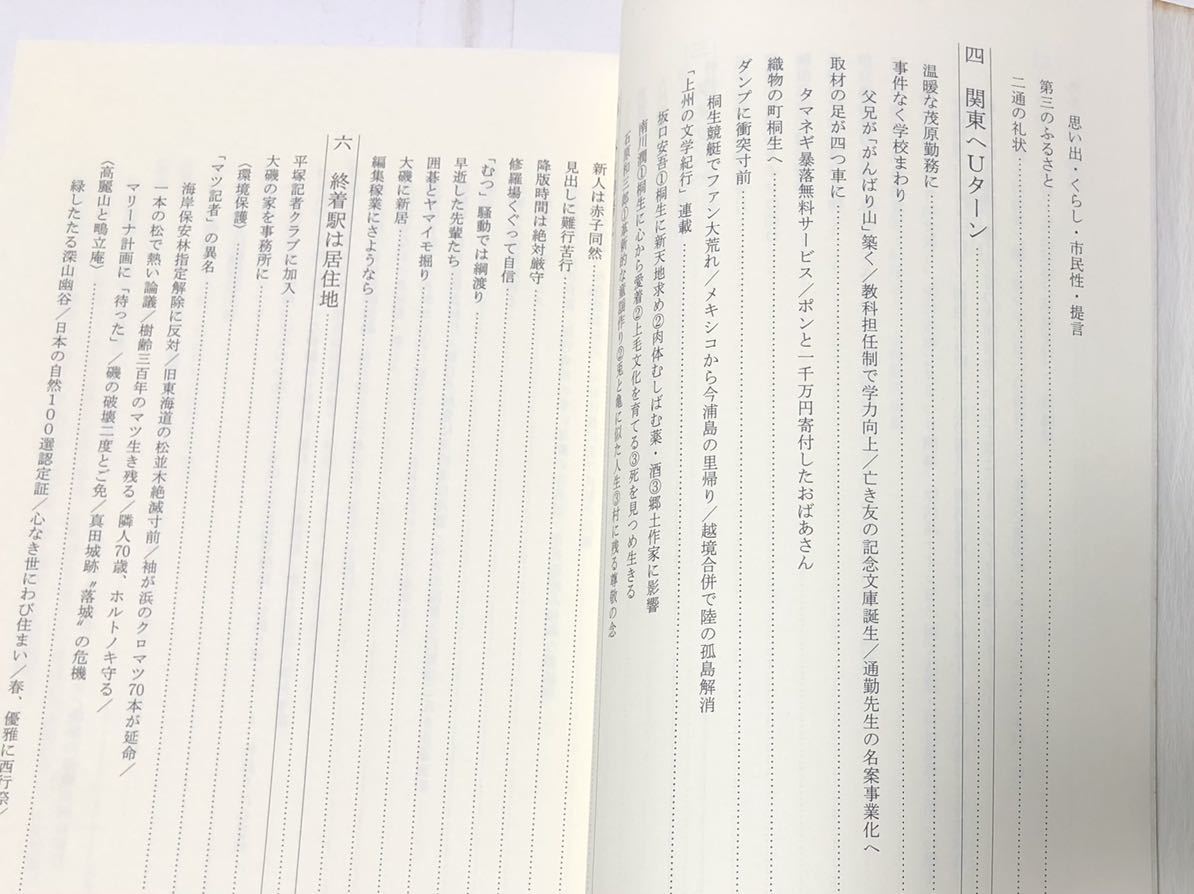 思い出・くらし・市民性・提言
第三のふるさと
二通の礼状
四　関東へUターン
温暖な茂原勤務に
事件なく学校まわり
父兄が「がんばり山」築く／教科担任制で学力向上／亡き友の記念文庫誕生／通勤先生の名案事業化へ
取材の足が四つ車に
タマネギ暴落無料サービス／ポンと一千万円寄付したおばあさん
織物の町桐生へ
ダンプに衝突寸前
桐生競艇でファン大荒れ／メキシコから今浦島の里帰り／越境合併で陸の孤島解消
「上州の文学紀行」連載
坂口安吾①桐生に新天地求め②肉体むしばむ薬・酒③郷土作家に影響
南川潤①桐生に心から愛着②上毛文化を育てる③死を見つめ生きる
石原和三郎①革新的な童謡作り②兎と亀に似た人生③村に残る尊敬の念
新人は赤子同然
見出しに難行苦行
降版時間は絶対厳守
修羅場くぐって自信
「むつ」騒動では綱渡り
早逝した先輩たち
囲碁とヤマイモ掘り
大磯に新居
編集稼業にさようなら
六　終着駅は居住地
平塚記者クラブに加入
大磯の家を事務所に
〈環境保護〉
「マツ記者」の異名
海岸保安林指定解除に反対／旧東海道の松並木絶滅寸前／袖が浜のクロマツ70本が延命／
一本の松で熱い論議／樹齢三百年のマツ生き残る／隣人70歳、ホルトノキ守る／
マリーナ計画に「待った」／磯の破壊二度とご免／真田城跡〝落城〟の危機
〈高麗山と鴫立庵〉
緑したたる深山幽谷／日本の自然100選認定証／心なき世にわび住まい／春　優雅に西行祭／